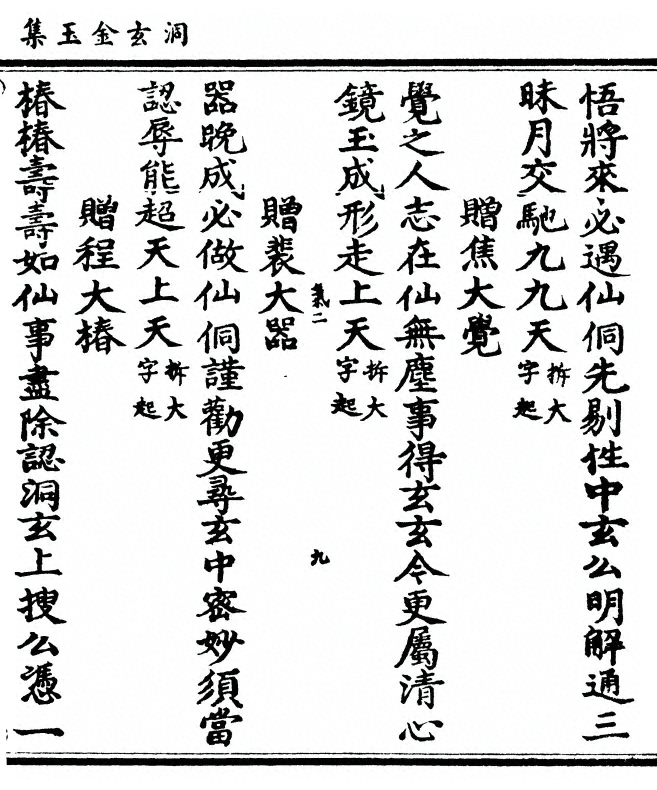 洞玄金玉集
悟將來必遇仙侗先剔性中玄公明解通三
昧月交馳九九天拆大字起
贈焦大覺
覺之人志在仙無塵事得玄玄令更屬清心
鏡玉成形走上天拆大字起
氣二
九
贈裴大器
器晚成必做仙侗謹勸更尋玄中密妙須當
認辱能超天上天拆大字起
贈程大椿
椿椿壽壽如仙事盡除認洞玄上搜公憑一